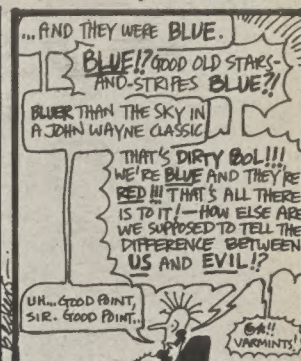 ...AND THEY WERE BLUE.
BLUE!? GOOD OLD STARS-
AND-STRIPES BLUE?!
BLUER THAN THE SKY IN
A JOHN WAYNE CLASSIC
THAT'S DIRTY POL!!!
WE'RE BLUE AND THEY'RE
RED!!! THAT'S ALL THERE
IS TO IT!—HOW ELSE ARE
WE SUPPOSED TO TELL THE
DIFFERENCE BETWEEN
US AND EVIL!?
UH... GOOD POINT,
SIR. GOOD POINT..
VARMINTS!